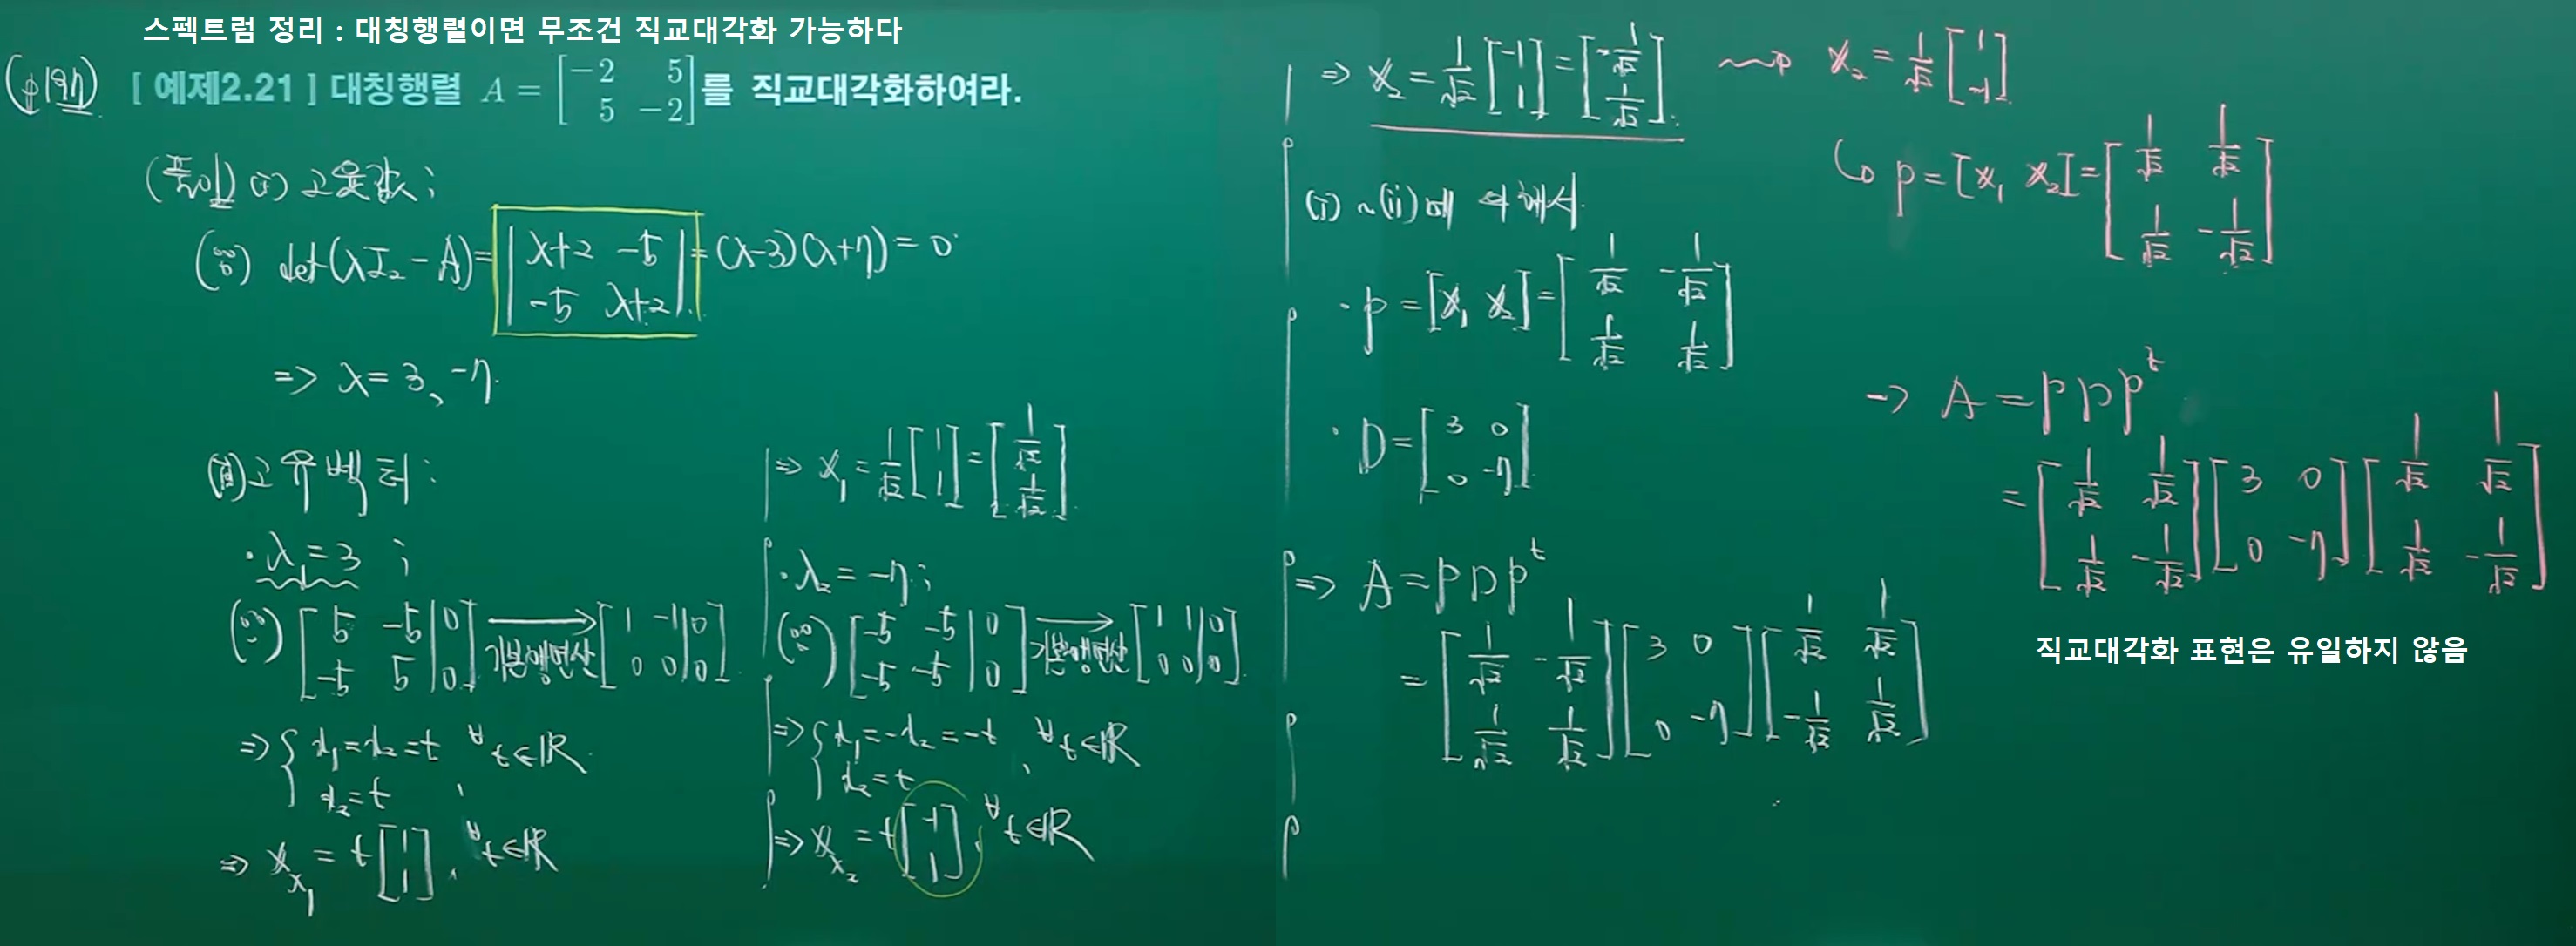 스펙트럼 정리 : 대칭행렬이면 무조건 직교대각화 가능하다
(p197) [ 예제2.21 ] 대칭행렬 A = [−2 5; 5 −2]를 직교대각화하여라.
(풀이) (i) 고윳값 ;
(∵) det(λI₂ − A) = |λ+2 −5; −5 λ+2| = (λ−3)(λ+7) = 0
=> λ = 3, −7.
(ii) 고유벡터 :
· λ₁ = 3 ;
(∵) [5 −5 | 0; −5 5 | 0] → 기본행연산 [1 −1 | 0; 0 0 | 0]
=> { x₁ = x₂ = t ∀t∈ℝ.
x₂ = t ,
=> x_λ₁ = t[1; 1], ∀t∈ℝ
=> x₁ = 1/√2 [1; 1] = [1/√2; 1/√2]
· λ₂ = −7 ;
(∵) [−5 −5 | 0; −5 −5 | 0] → 기본행연산 [1 1 | 0; 0 0 | 0]
=> { x₁ = −x₂ = −t ∀t∈ℝ
x₂ = t ,
=> x_λ₂ = t[−1; 1], ∀t∈ℝ
=> x₂ = 1/√2 [−1; 1] = [−1/√2; 1/√2].
(i) ~ (ii)에 의해서
· P = [x₁ x₂] = [1/√2 −1/√2; 1/√2 1/√2]
· D = [3 0; 0 −7]
=> A = PDPᵗ
= [1/√2 −1/√2; 1/√2 1/√2] [3 0; 0 −7] [1/√2 1/√2; −1/√2 1/√2]
⇝ x₂ = 1/√2 [1; −1]
↪ P = [x₁ x₂] = [1/√2 1/√2; 1/√2 −1/√2]
→ A = PDPᵗ
= [1/√2 1/√2; 1/√2 −1/√2] [3 0; 0 −7] [1/√2 1/√2; 1/√2 −1/√2]
직교대각화 표현은 유일하지 않음